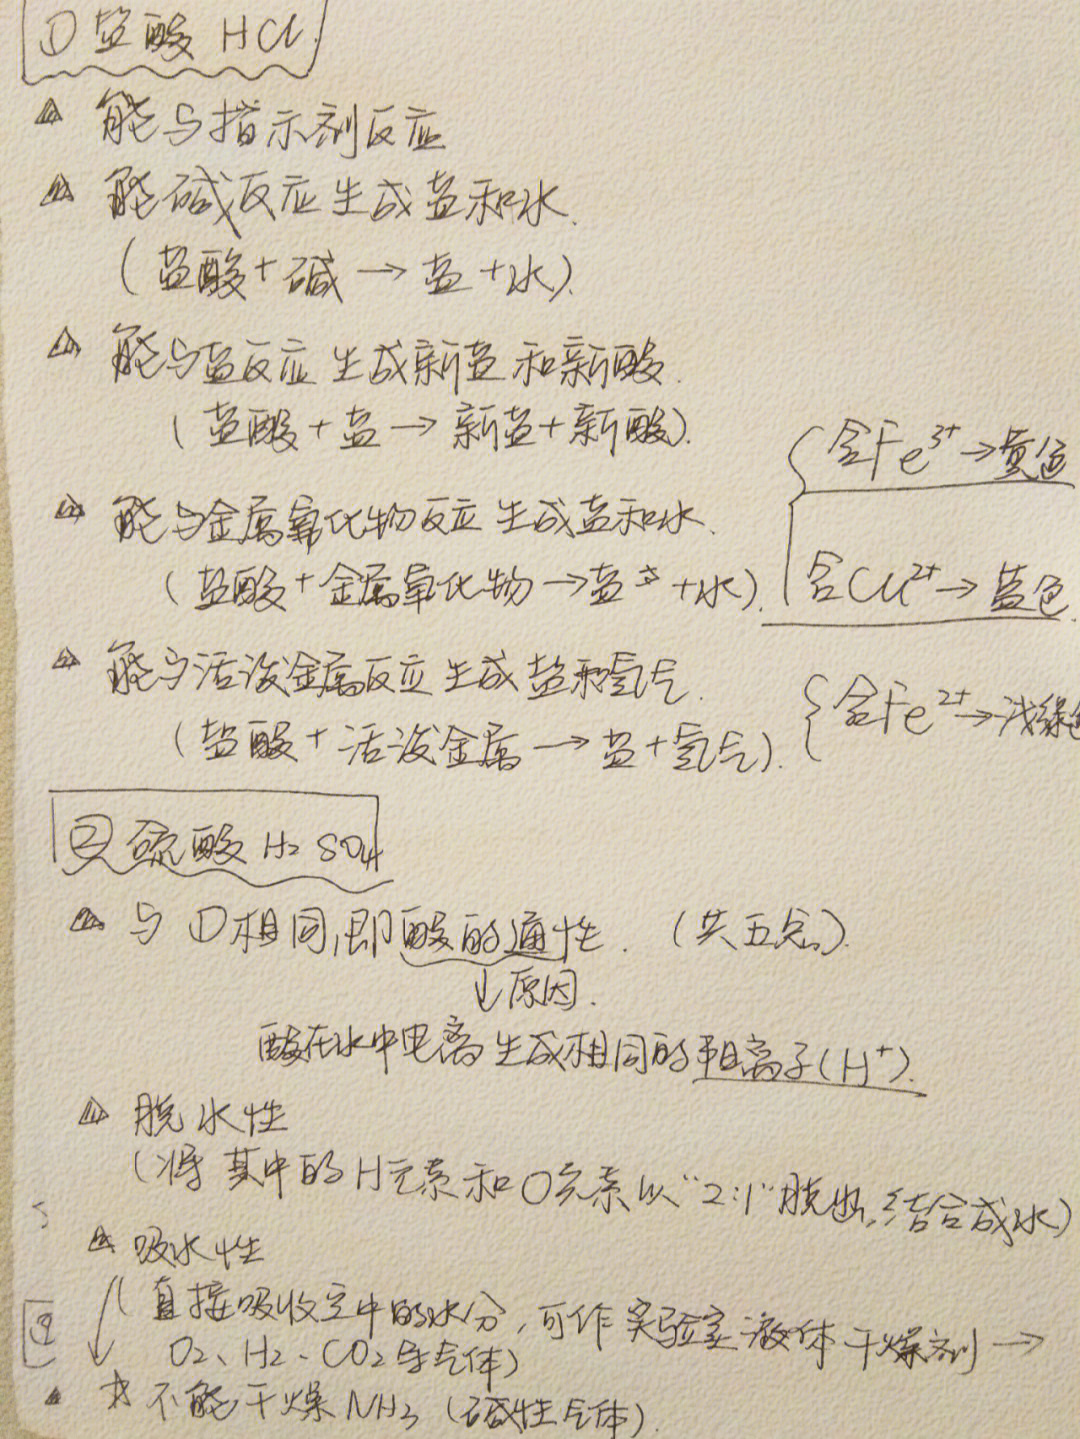 ①盐酸 HCl.
能与指示剂反应
能碱反应生成盐和水.
(盐酸+碱→盐+水).
能与盐反应生成新盐和新酸.
(盐酸+盐→新盐+新酸).
含Fe³⁺→黄色
能与金属氧化物反应生成盐和水.
(盐酸+金属氧化物→盐+水).
含Cu²⁺→蓝色.
能与活泼金属反应生成盐和氢气.
含Fe²⁺→浅绿色
(盐酸+活泼金属→盐+氢气).
②硫酸 H₂SO₄
与①相同,即酸的通性.(共五点).
↓原因.
酸在水中电离生成相同的阳离子(H⁺).
脱水性
(将其中的H元素和O元素以“2:1”脱出,结合成水)
吸水性
(直接吸收空中的水分,可作实验室液体干燥剂→
O₂、H₂、CO₂等气体)
不能干燥NH₃(碱性气体).